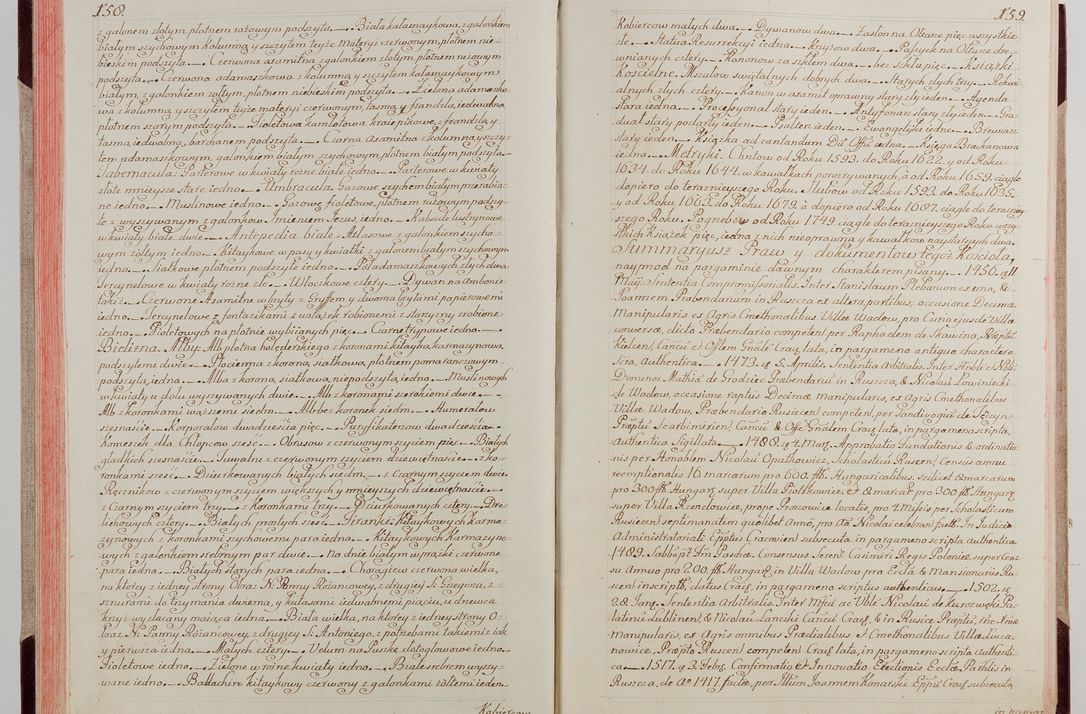 158.
z galonem złotym, płotnem rożowym podszyta. — Biała kałamaykowa, z galonkiem
białym szychowym kolumną y szczytem teyże materyi czerwonym, płotnem nie-
bieskim podszyta. — Czerwona asamitna z galonkiem złotym, płotnem rużowym
podszyta. — Czerwona adamaszkowa z kolumną y szczytem kałamaykowym
białym, z galonkiem żołtym, płotnem niebieskim podszyta. — Zielona adamaszko-
wa z kolumną y szczytem teyże materyi czerwonym, tasmą y frandzlą, jedwabną,
płotnem szarym podszyta. — Fioletowa kamlotowa kraie pikowe, z frandzlą y
tasmą iedwabną, barchanem podszyta. — Czarna Asamitna z kolumną y szczy-
tem adamaszkowym, galonkiem białym szychowym, płotnem białym podszyta.
Tabernacula: Parterowe w kwiaty rożne białe iedno. — Parterowe w kwiaty
złote mnieysze stare iedno. — Umbracula. Gazowe szychem białym przerabia-
ne iedno. — Muslinowe iedno. — Gazowe fioletowe, płotnem rużowym podszy-
te z wyszywanym z galonkow Imieniem Jezus, iedno. — Kabwie lustynowe
w kwiaty białe dwie. — Antepedia białe. Atłasowe z galonkiem szycho-
wym żołtym iedno. — Kitaykowe w pasy y kwiatki z galonem białym szychowym
iedno. — Siatkowe płotnem podszyte iedno. — Poładamaszkowych złych dwa.
Tercynelowe w kwiaty rożne złe. — Włoczkowe cztery. — Dywan na Ambonie
takiż. — Czerwone Asamitne w bryty z Gryffem y dwoma brytami papierowemi
iedno. — Tercynelowe z fontazikami z wstążek robionemi z starzyzny zrobione
iedno. — Fioletowych na płotnie wybijanych pięc. — Czarne trypowe iedno. —
Bielizna. Alby: Alb płotna holęderskiego z koronami kitayką karmazynową,
podszytemi dwie. — Płocienna z koroną, siatkową, płotnem pomarańczowym
podszytą, iedna. — Alba z koroną, siatkową, niepodszytą, iedna. — Muslinowych
w kwiaty u dołu wyszywanych dwie. — Alb z koronami szerokiemi dwie. —
Alb z koronkami węższemi siedm. — Alb bez koronek siedm. — Humerałow
szesnascie. — Korporałow dwadzieścia pięc. — Puryfikaterzow dwadzieścia. —
Komeszek dla Chłopcow szesć. — Obrusow z czerwonym szyciem pięc. — Białych
gładkich szesnaście. — Tuwalni z czerwonym szyciem dziewiętnaście. — z ko-
ronkami szesć. — Dziurkowanych białych siedm. — z Czarnym szyciem dwie.
Ręcznikow z czerwonym szyciem większych y mnieyszych dziewiętnaście. —
z Czarnym szyciem trzy. — z Koronkami trzy. — Dziurkowanych cztery. — Dre-
lichowych cztery. — Białych prostych szesć. — Firanki: Kitaykowych karma-
zynowych z koronkami szychowemi para iedna. — Kitaykowych Karmazyno-
wych z galonkiem srebrnym par dwie. — Na dnie białym w prążki czerwone
para iedna. — Białych starych para iedna. — Chorągiew czerwona wielka,
na ktorey z iedney strony Obraz N. Panny Rożancowey, z drugiey S. Grzegorza, z
sznurami do trzymania dwiema, y kutasami iedwabnemi pięciu, u drzewca
krzyż wyzłacany maiąca iedna. — Biała wielka, na ktorey z iedney strony O-
braz N. Panny Rożancowey z drugiey S. Antoniego, z potrzebami takiemiż iak
y pierwsza iedna. — Małych cztery. — Velum na Puszkę złotogłowowe iedno. —
Fioletowe iedno. — Zielone w rożne kwiaty iedno. — Białe srebrem wyszy-
wane iedno. — Baldachim kitaykowy czerwony z galonkami żołtemi ieden. —
Kobiercow
159.
Kobiercow małych dwa. — Dywanow dwa. — Zasłon na Ołtarze pięc wszystkie
złe. — Statua Resurrekcyi iedna. — Krzyżow dwa. — Pasyyek na Ołtarze dre-
wnianych cztery. — Kanonow za szkłem dwa. — bez szkła pięc. — Książki
Koscielne. Mszałow swątalnych dobrych dwa. — Starych złych trzy. — Rekwi-
alnych złych cztery. — Kanon w asamit oprawny stary zły ieden. — Agenda
stara iedna. — Processyonał stary ieden. — Antyfonarz stary zły ieden. — Gra-
duał stary podarty ieden. — Psałterz ieden. — Ewangeliyki iedne. — Brewiarz
stary ieden. — Książka ad cantandum Div: Offic: iedna. — Księga Brackanowa
iedna. — Metryki. Chrztow od Roku 1593. do Roku 1622. y od Roku
1634. do Roku 1644. w kawałkach porozrywanych, à od Roku 1659. ciągle
dopiero do teraznieyszego Roku. Slubow od Roku 1593. do Roku 1635.
y od Roku 1663. do Roku 1679. à dopiero od Roku 1687. ciągle do teraznay-
szego Roku. — Pogrzebow od Roku 1749. ciągle do teraznieyszego Roku wszy-
stkich Książek pięc, iedna z nich nieoprawna y kawałkow naystarszych dwa.
Summaryusz Praw y dokumentow tegoż Kościoła,
naymod na pargaminie dawnym charakterem pisany. — 1456. 9. 11
Maij. Sententia Compromissionalis, Inter Stanislaum Plebanum ex una, &
Joannem Præbendarium in Ruszcza ex altera partibus, occasione Decimæ
Manipularis ex Agris Cmethonalibus Villæ Wadow, pro Curia ejusdē Villæ
conversæ, dicto Præbendario competen: per Raphaelem de Skawina, Præptū
Kielcen:, Cancū et Offlem Gnãlē Crac̃: lata, in pargameno antiquo charactere
scra, Authentica. — 1473. 9. 5. Aprilis. Sententia Arbitralis, Inter Hrble et Nobi:
Dominos Mathiã de Grodziec Præbendariū in Ruszcza, & Nicolaū Lowiniecki
de Wadow, occasione raptus Decimæ manipularis, ex Agris Cmethonalibus
Villæ Wadow, Præbendario Rusiecen: competen:, per Sandivogiū de Tęczyn
Præptū Scarbimirien: Cancū & Offic: Gnãlem Crac̃: lata, in pargameno scripta,
authentica Sigillata. — 1488. 9. 4. Mar̃. Approbatio Fundationis & ordinatio-
nis per Honoblem Nicolaū Opatkowicz, Scholasticū Ruscen:, Census annui
reemptionalis 16. marcarum pro 600. fł. Hungaricalibus, scilicet 8. marcarum
pro 300. fł. Hungar̃: super Villa Piotrkowice, et 8. marcar̃ pro 300. fł. Hungar̃:
super Villa Rzendowice, prope Proszowice locatis, pro 4. Missis per Scholasticum
Rusiecen: septimanatim quolibet Anno, pro Aīa Nicolai celebran: fact. In Judicio
Administratoriali Epptus Cracovien: subsecuta in pargameno scripta authentica.
1489. Sabbo pt Fm Paschæ. Consensus Seren: Casimiri Regis Poloniæ, super Cen:
su Annuo pro 200. fł. Hungar̃: in Villa Wadow pro Eccla & Mansionariis Ru-
scen: inscripto, datus Crac̃:, in pargameno scriptus authenticus. — 1502. 9.
28. Jan̄. Sententia Arbitralis, Inter Mficū ac Vble: Nicolaū de Kurozwęka Pa-
latinū Lublinen: & Nicolaū Lanczki Cancū Crac̃:, & in Rusica Præptū, rñe Dmæ
manipularis, ex Agris omnibus Prædialibus & Cmethonalibus Villæ Lucza-
nowice, Præpto Ruscen: competen: Crac̃: lata, in pargameno scripta authenti-
ca. — 1517. 9. 3. Febr̃: Confirmatio et Innovatio Erectionis Ecclæ Parlis in
Ruszcza, de Aō 1417. factæ, per Illum Joannem Konarski Eppū Crac̃: subsecuta,
in parga-